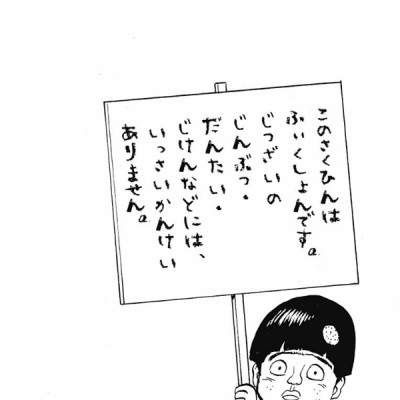 このさくひんは
ふぃくしょんです。
じつざいの
じんぶつ・
だんたい・
じけんなどには、
いっさいかんけい
ありません。